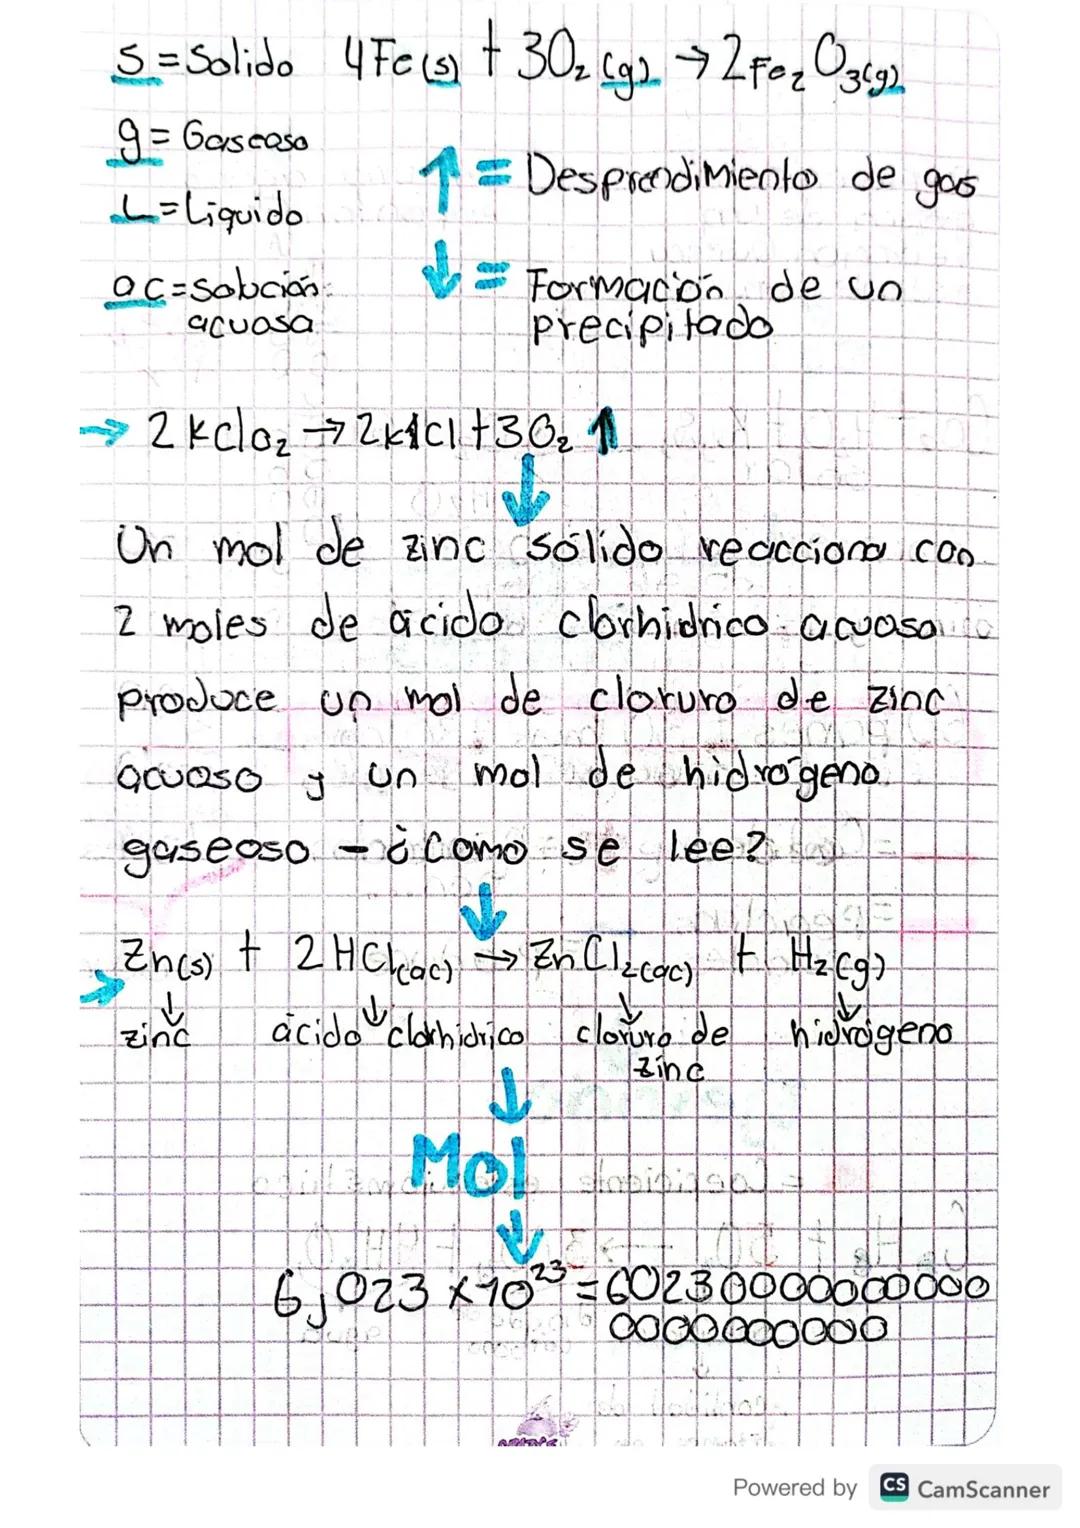 S = Solido 4Fe(s) + 3O₂(g) → 2Fe₂O₃(g)
g = Gaseoso
↑ = Desprendimiento de gas
L = Liquido
ac = solución acuosa
↓ = Formación de un
precipitado
→ 2KClO₂ → 2K1Cl + 3O₂ ↑
↓
Un mol de zinc sólido reacciona con
2 moles de ácido clorhidrico acuoso
produce un mol de cloruro de zinc
acuoso y un mol de hidrógeno
gaseoso - ¿Como se lee?
↓
→ Zn(s) + 2HCl(ac) → ZnCl₂(ac) + H₂(g)
↓ ↓ ↓ ↓
zinc ácido clorhidrico cloruro de hidrógeno
zinc
↓
Mol
↓
6,023 x 10²³ = 602300000000000
0000000000
Powered by CS CamScanner